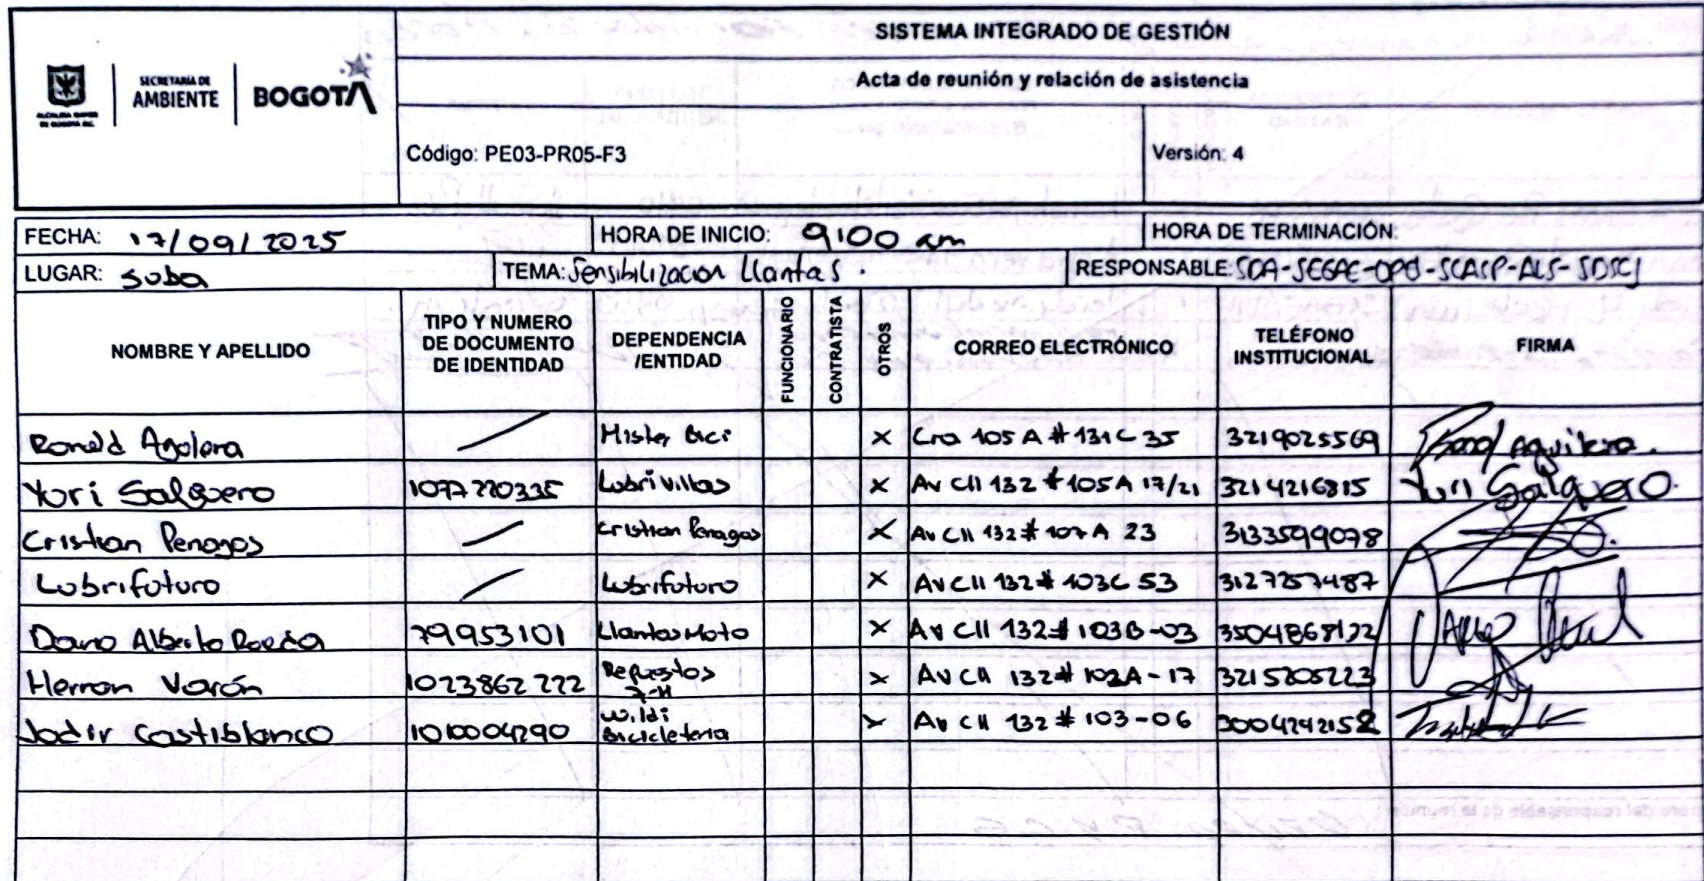 SISTEMA INTEGRADO DE GESTIÓN
Acta de reunión y relación de asistencia
ALCALDÍA MAYOR DE BOGOTÁ D.C.
SECRETARÍA DE AMBIENTE
BOGOTÁ
Código: PE03-PR05-F3 Versión: 4
FECHA: 17/09/2025 HORA DE INICIO: 9:00 am HORA DE TERMINACIÓN:
LUGAR: Suba TEMA: Sensibilizacion Llantas. RESPONSABLE: SDA-SEGAE-OPEL-SCASP-ALS-SDSCJ
NOMBRE Y APELLIDO TIPO Y NUMERO DE DOCUMENTO DE IDENTIDAD DEPENDENCIA /ENTIDAD FUNCIONARIO CONTRATISTA OTROS CORREO ELECTRÓNICO TELÉFONO INSTITUCIONAL FIRMA
Ronald Agolera / Mister Bici X Cra 105 A # 131C 35 3219025569 Ronal Aguilera.
Yuri Salguero 1077220335 Lubrivillas X Av Cll 132 # 105A 17/21 3214216815 Yuri Salguero.
Cristian Penagos / Cristian Penagos X Av Cll 132 # 107 A 23 3133599078
Lubrifuturo / Lubrifuturo X Av Cll 132 # 103C 53 3127257487
Dario Alberto 79953101 Llantas Moto X Av Cll 132 # 103B-03 3504868122
Herman Varón 1023862222 Repuestos 7-H X Av Cll 132 # 102A-17 3215205223
Jadir Castiblanco 1010004290 Wildi Bicicleteria X Av Cll 132 # 103-06 3004242152